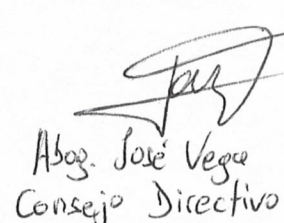 Abog. José Vega
Consejo Directivo